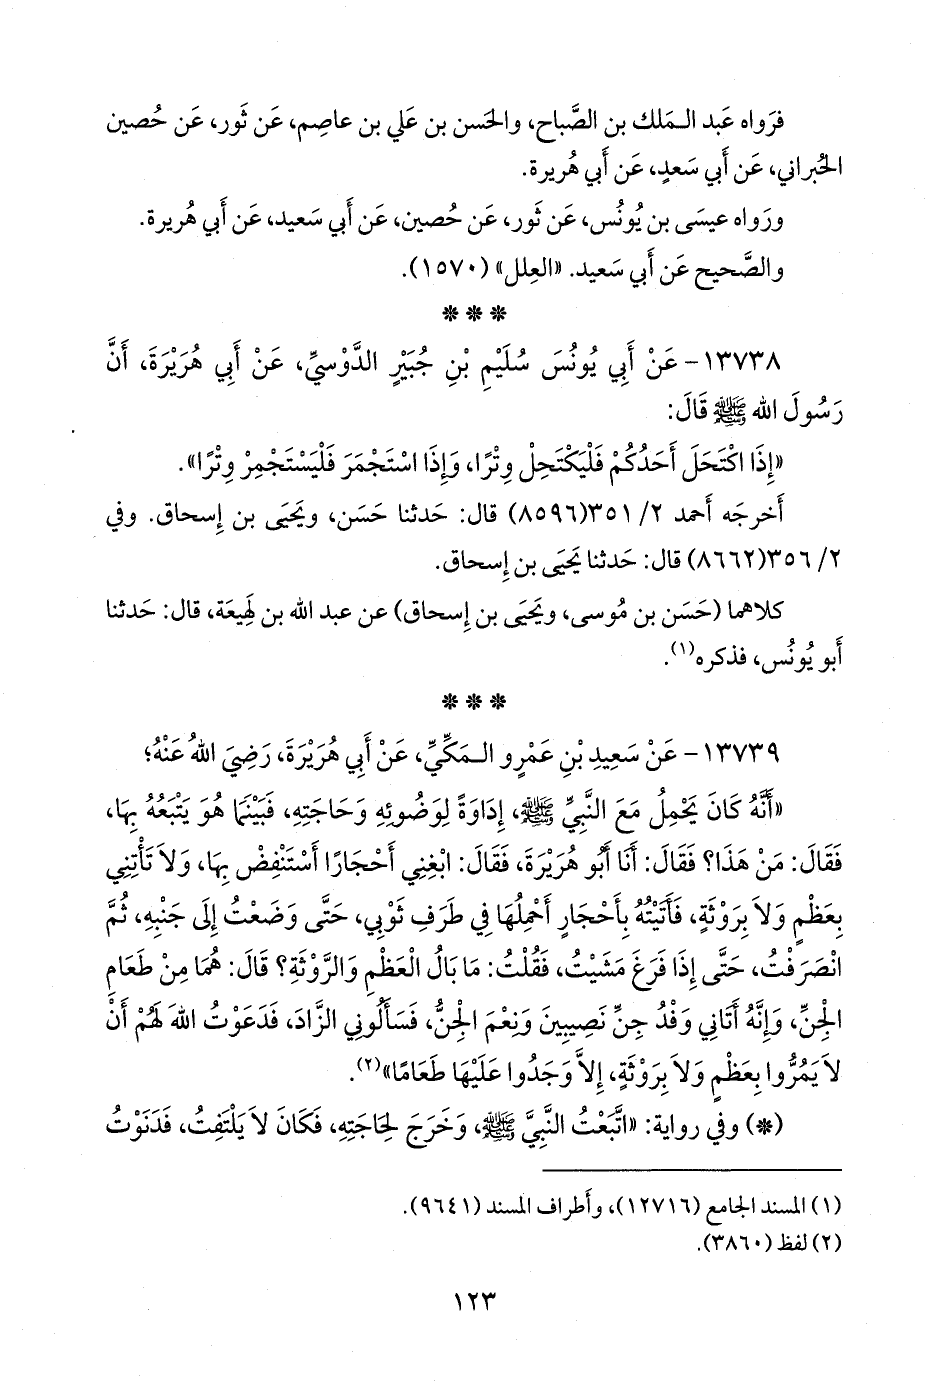 فرَواه عَبد الـمَلك بن الصَّباح، والحَسن بن عَلي بن عاصِم، عَن ثَور، عَن حُصين
الحُبراني، عَن أَبي سَعدٍ، عَن أَبي هُريرة.
ورَواه عيسَى بن يُونُس، عَن ثَور، عَن حُصين، عَن أَبي سَعيد، عَن أَبي هُريرة.
والصَّحيح عَن أَبي سَعيد. «العِلل» (١٥٧٠).
* * *
١٣٧٣٨ - عَنْ أَبِي يُونُسَ سُلَيْمِ بْنِ جُبَيْرٍ الدَّوْسِيِّ، عَنْ أَبِي هُرَيْرَةَ، أَنَّ
رَسُولَ الله ﷺ قَالَ:
«إِذَا اكْتَحَلَ أَحَدُكُمْ فَلْيَكْتَحِلْ وِتْرًا، وَإِذَا اسْتَجْمَرَ فَلْيَسْتَجْمِرْ وِتْرًا».
أَخرجَه أَحمد ٢/ ٣٥١(٨٥٩٦) قال: حَدثنا حَسَن، ويَحيَى بن إِسحاق. وفي
٢/ ٣٥٦(٨٦٦٢) قال: حَدثنا يَحيَى بن إِسحاق.
كلاهما (حَسَن بن مُوسى، ويَحيَى بن إِسحاق) عن عبد الله بن لَهِيعَة، قال: حَدثنا
أَبو يُونُس، فذكره(١).
* * *
١٣٧٣٩ - عَنْ سَعِيدِ بْنِ عَمْرٍو الـمَكِّيِّ، عَنْ أَبِي هُرَيْرَةَ، رَضِيَ اللهُ عَنْهُ؛
«أَنَّهُ كَانَ يَحْمِلُ مَعَ النَّبِيِّ ﷺ، إِدَاوَةً لِوَضُوئِهِ وَحَاجَتِهِ، فَبَيْنَمَا هُوَ يَتْبَعُهُ بِهَا،
فَقَالَ: مَنْ هَذَا؟ فَقَالَ: أَنَا أَبُو هُرَيْرَةَ، فَقَالَ: ابْغِنِي أَحْجَارًا أَسْتَنْفِضْ بِهَا، وَلاَ تَأْتِنِي
بِعَظْمٍ وَلاَ بِرَوْثَةٍ، فَأَتَيْتُهُ بِأَحْجَارٍ أَحْمِلُهَا فِي طَرَفِ ثَوْبِي، حَتَّى وَضَعْتُ إِلَى جَنْبِهِ، ثُمَّ
انْصَرَفْتُ، حَتَّى إِذَا فَرَغَ مَشَيْتُ، فَقُلْتُ: مَا بَالُ الْعَظْمِ وَالرَّوْثَةِ؟ قَالَ: هُمَا مِنْ طَعَامِ
الْجِنِّ، وَإِنَّهُ أَتَانِي وَفْدُ جِنِّ نَصِيبِينَ وَنِعْمَ الْجِنُّ، فَسَأَلُونِي الزَّادَ، فَدَعَوْتُ اللهَ لَهُمْ أَنْ
لاَ يَمُرُّوا بِعَظْمٍ وَلاَ بِرَوْثَةٍ، إِلاَّ وَجَدُوا عَلَيْهَا طَعَامًا»(٢).
(*) وفي رواية: «اتَّبَعْتُ النَّبِيَّ ﷺ، وَخَرَجَ لِحَاجَتِهِ، فَكَانَ لاَ يَلْتَفِتُ، فَدَنَوْتُ
(١) المسند الجامع (١٢٧١٦)، وأَطراف المسند (٩٦٤١).
(٢) لفظ (٣٨٦٠).
١٢٣